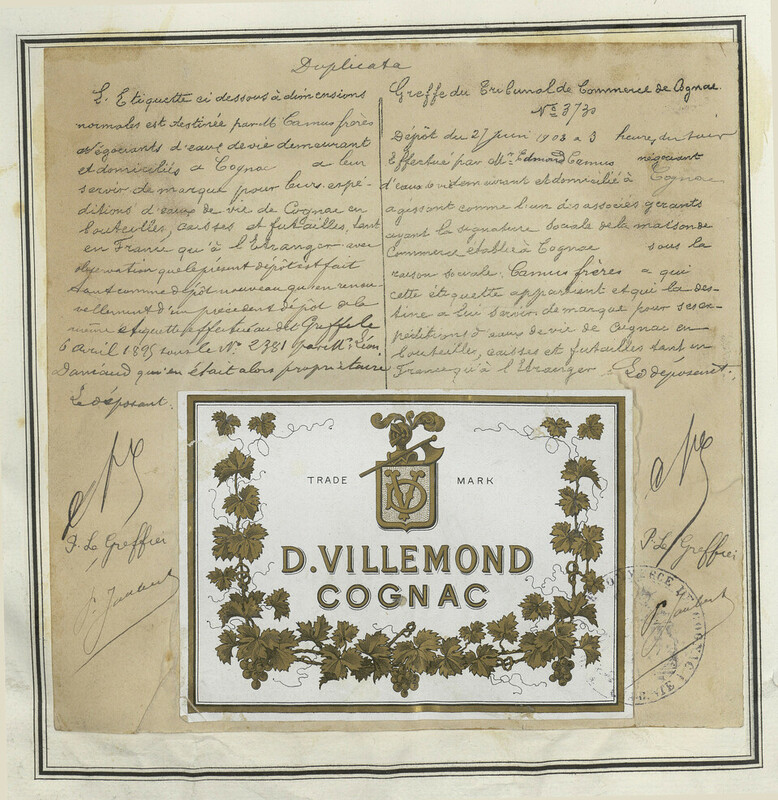 Duplicata
L'Etiquette ci dessous à dimensions
normales est destinée par Mr Camus frères
Négociants d'eaux de vie demeurant
et domiciliés à Cognac à leur
servir de marque pour leurs expé-
ditions d'eaux de vie de Cognac en
bouteilles, caisses et futailles, tant
en France qu'à l'Etranger avec
observation que le présent dépôt est fait
tant comme dépôt nouveau qu'en renou-
vellement d'un précédent dépôt de la
même étiquette effectué au dit Greffe le
6 Avril 1895 sous le No 2381 par Mr Léon
qui en était alors propriétaire
Le déposant.
P. Le Greffier
Greffe du Tribunal de Commerce de Cognac.
No 3730
Dépôt du 27 Juin 1903 à 3 heures du soir
Effectué par Mr Edmond Camus négociant
d'eaux de vie demeurant et domicilié à Cognac
agissant comme l'un des associés gérants
ayant la signature sociale de la maison de
Commerce établie à Cognac sous la
raison sociale: Camus frères à qui
cette étiquette appartient et qui la des-
tine à lui servir de marque pour ses ex-
péditions d'eaux de vie de Cognac en
bouteilles, caisses et futailles tant en
France qu'à l'Etranger Le déposant.
P. Le Greffier
TRADE MARK
D. VILLEMOND
COGNAC